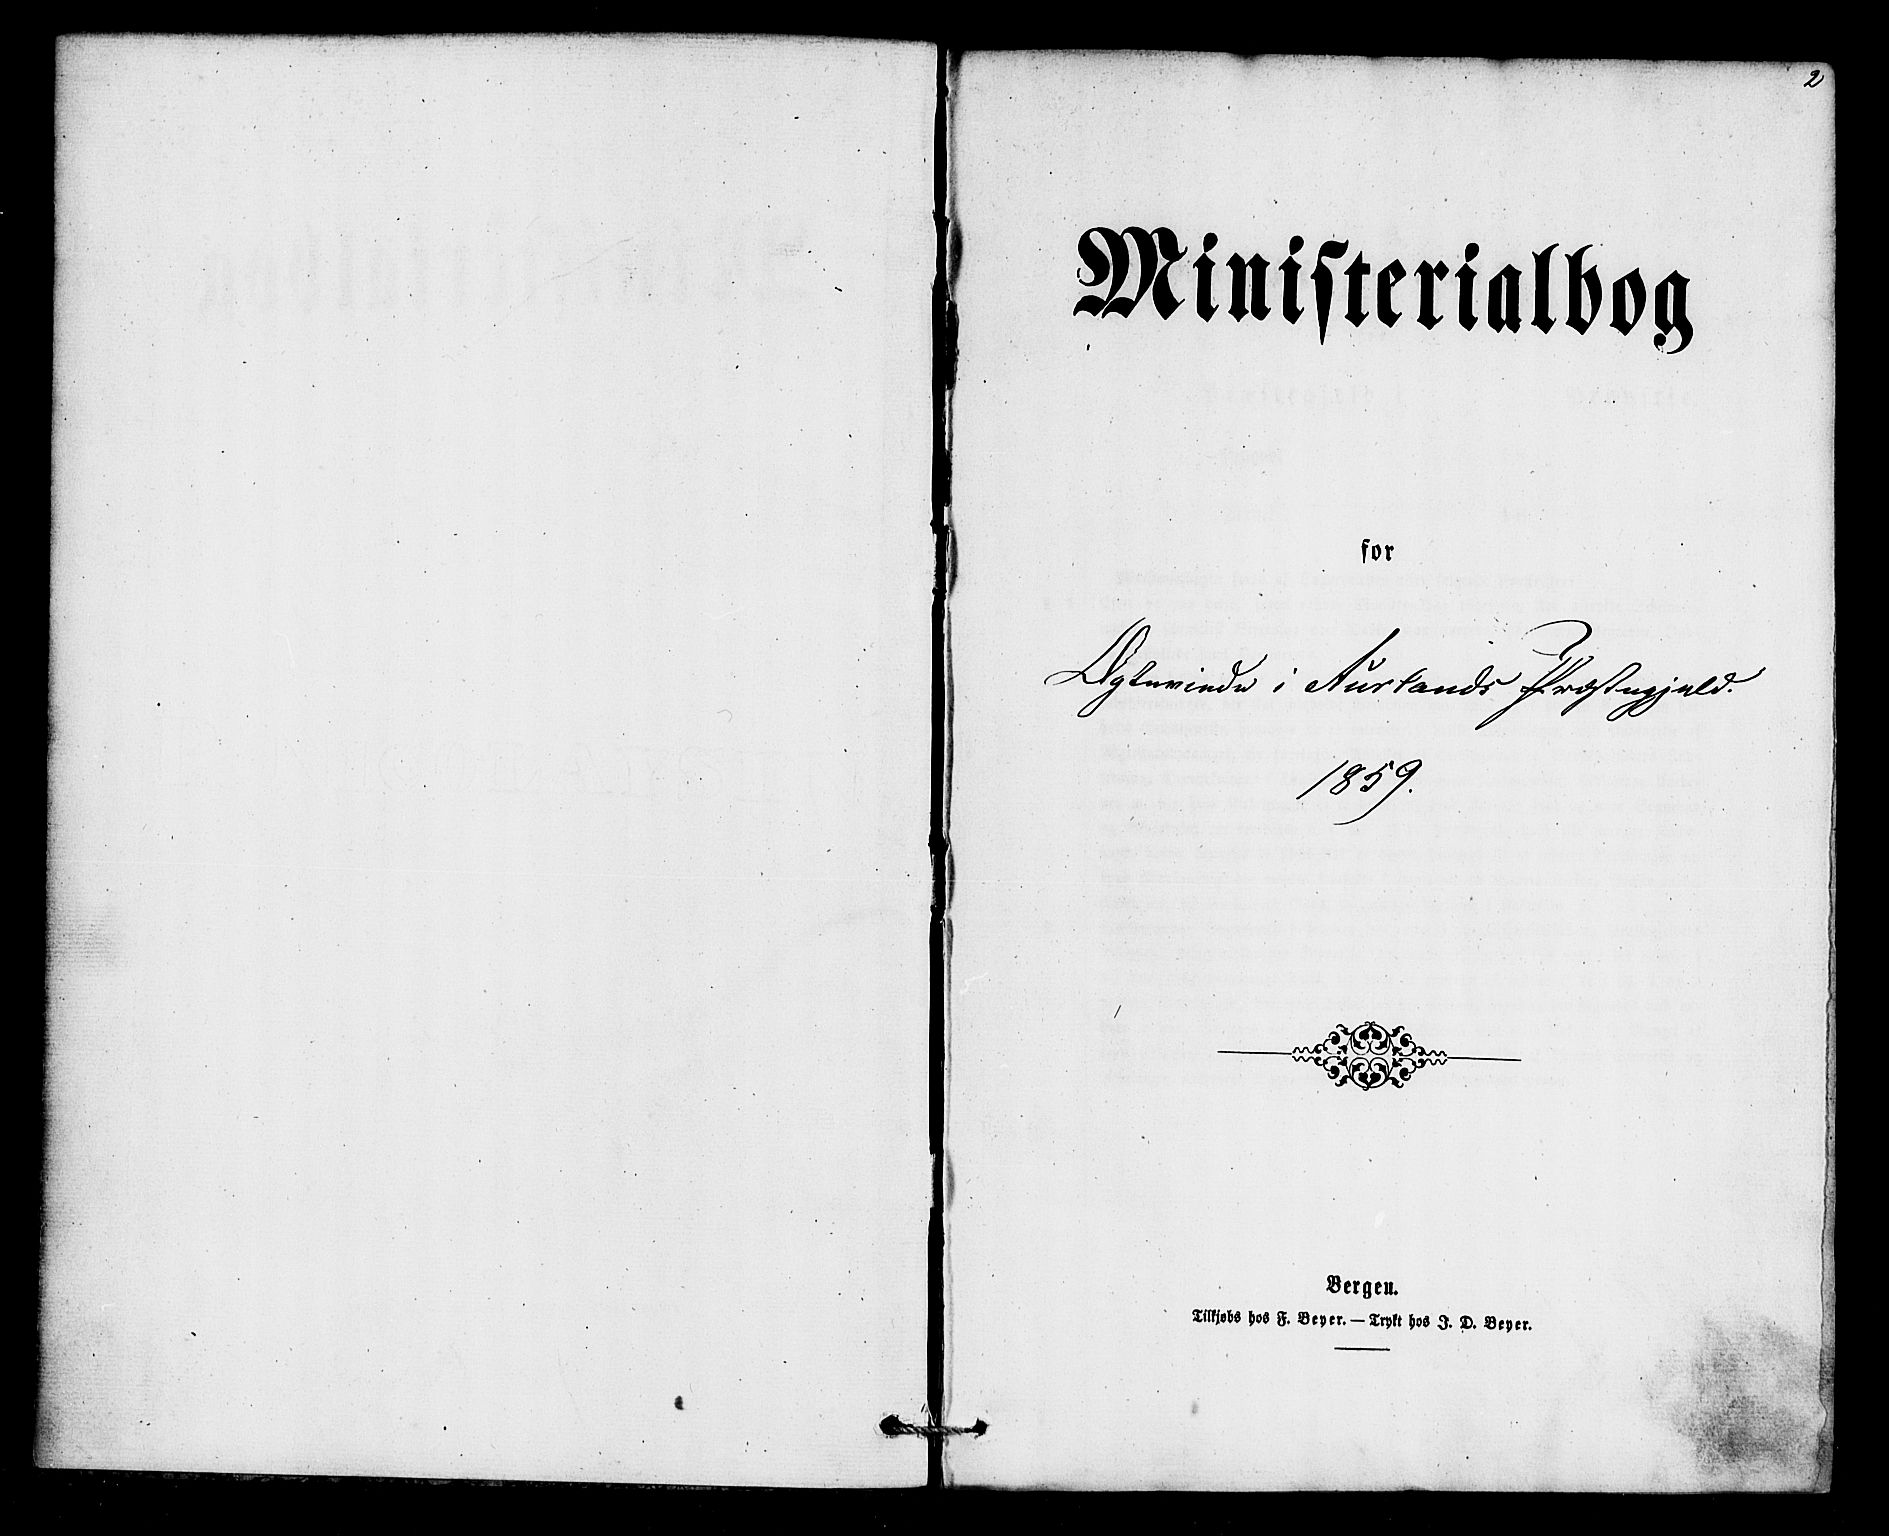 2
Ministerialbog
for
Ægteviede i Aurlands Præstegjeld.
1859.
Bergen.
Tilkjøbs hos F. Beyer. — Trykt hos J. D. Beyer.